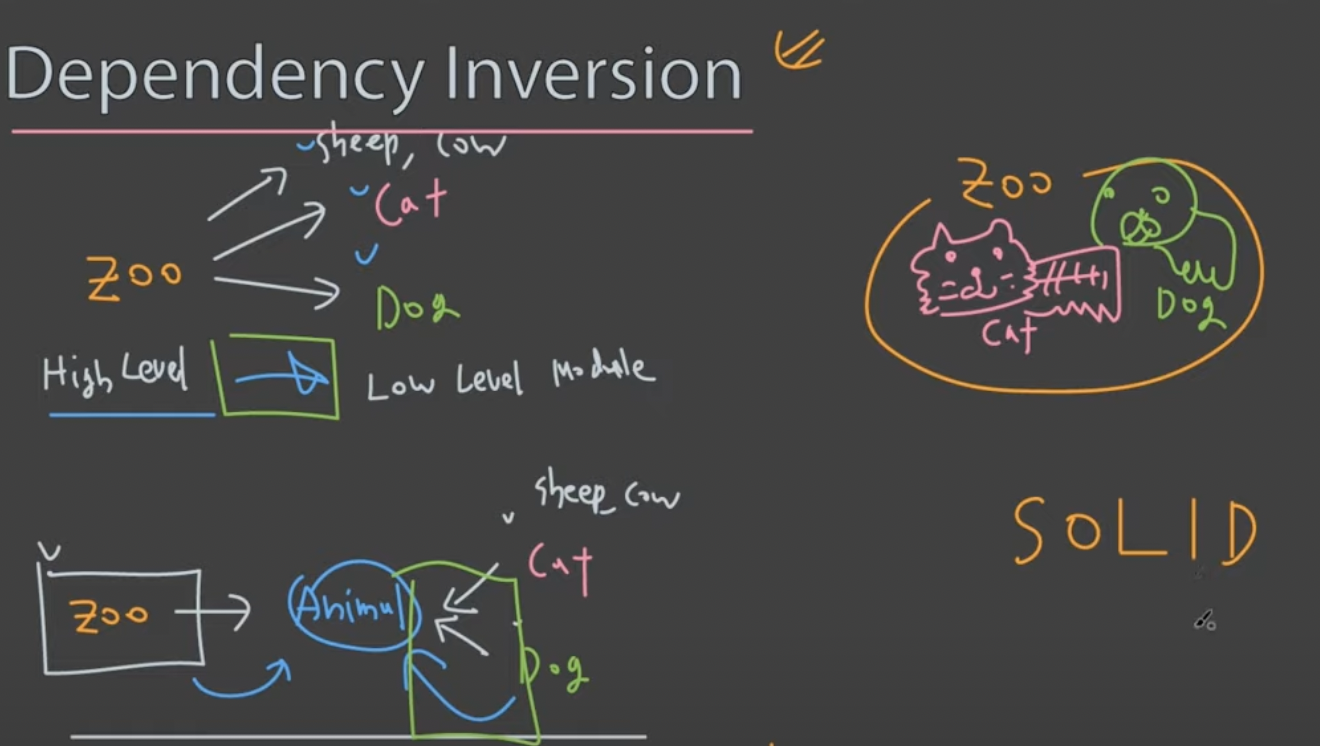 Dependency Inversion
sheep, cow
Cat
Zoo
Dog
High Level
Low Level Module
Zoo
Cat
Dog
sheep cow
Cat
Zoo
Animal
Dog
SOLID